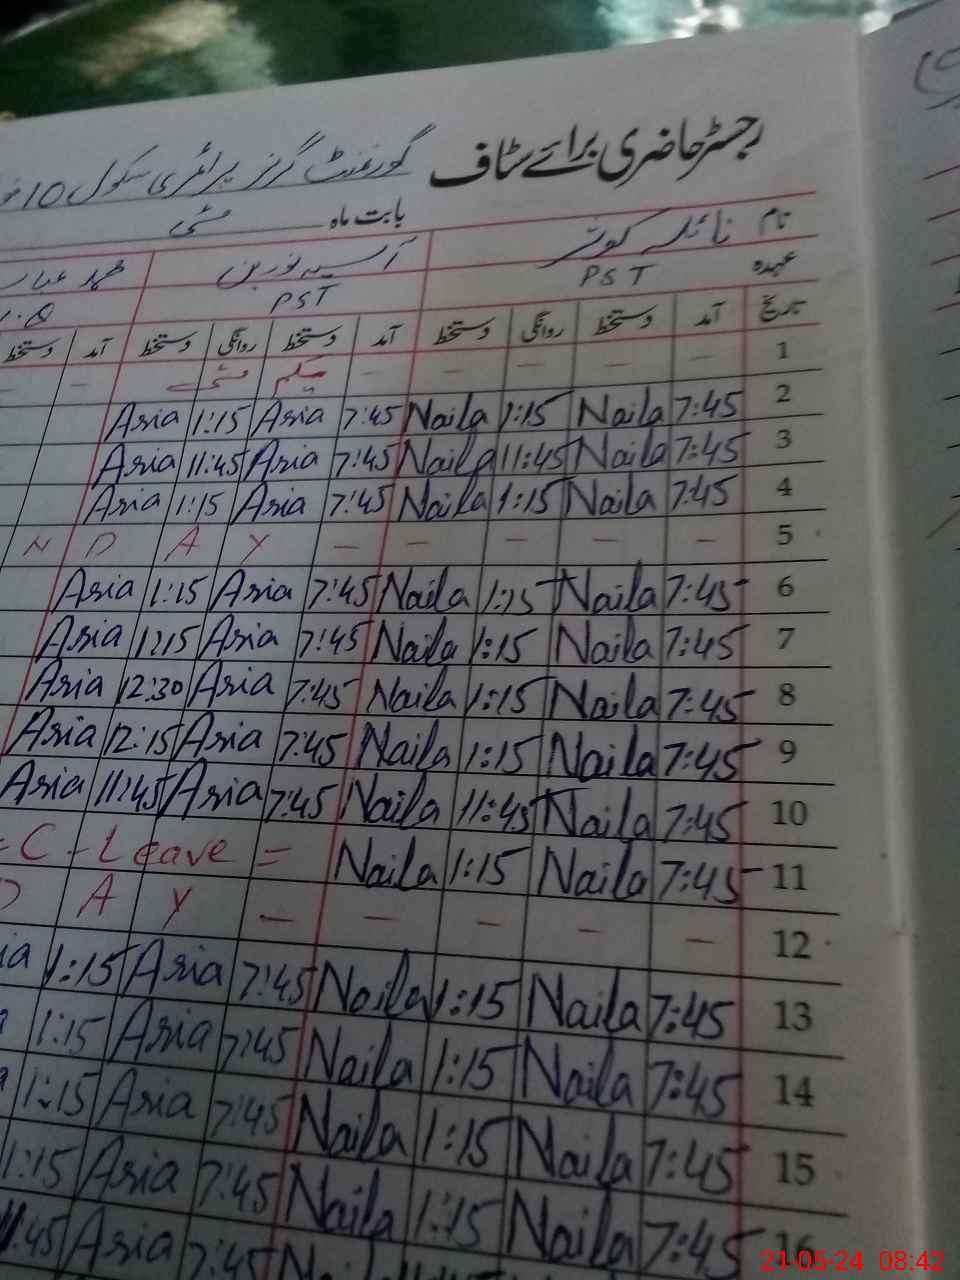 رجسٹر حاضری برائے سٹاف گورنمنٹ گرلز پرائمری سکول 10
بابت ماہ مئی
نام نائلہ کوثر آسیہ نورین
عہدہ PST PST
تاریخ آمد دستخط روانگی دستخط آمد دستخط روانگی دستخط آمد دستخط
1 — — — — — یکم مئی — —
2 7:45 Naila 1:15 Naila 7:45 Asia 1:15 Asia
3 7:45 Naila 11:45 Naila 7:45 Asia 11:45 Asia
4 7:45 Naila 1:15 Naila 7:45 Asia 1:15 Asia
5 — — — — — Y A D N
6 7:45 Naila 1:15 Naila 7:45 Asia 1:15 Asia
7 7:45 Naila 1:15 Naila 7:45 Asia 1:15 Asia
8 7:45 Naila 1:15 Naila 7:45 Asia 12:30 Asia
9 7:45 Naila 1:15 Naila 7:45 Asia 12:15 Asia
10 7:45 Naila 11:45 Naila 7:45 Asia 11:45 Asia
11 7:45 Naila 1:15 Naila = C - Leave =
12 — — — — — Y A D
13 7:45 Naila 1:15 Naila 7:45 Asia 1:15 ia
14 7:45 Naila 1:15 Naila 7:45 Asia 1:15 a
15 7:45 Naila 1:15 Naila 7:45 Asia 1:15 a
16 7:45 Naila 1:15 Naila 7:45 Asia 1:15
7:45 Asia 11:45
21-05-24 08:42